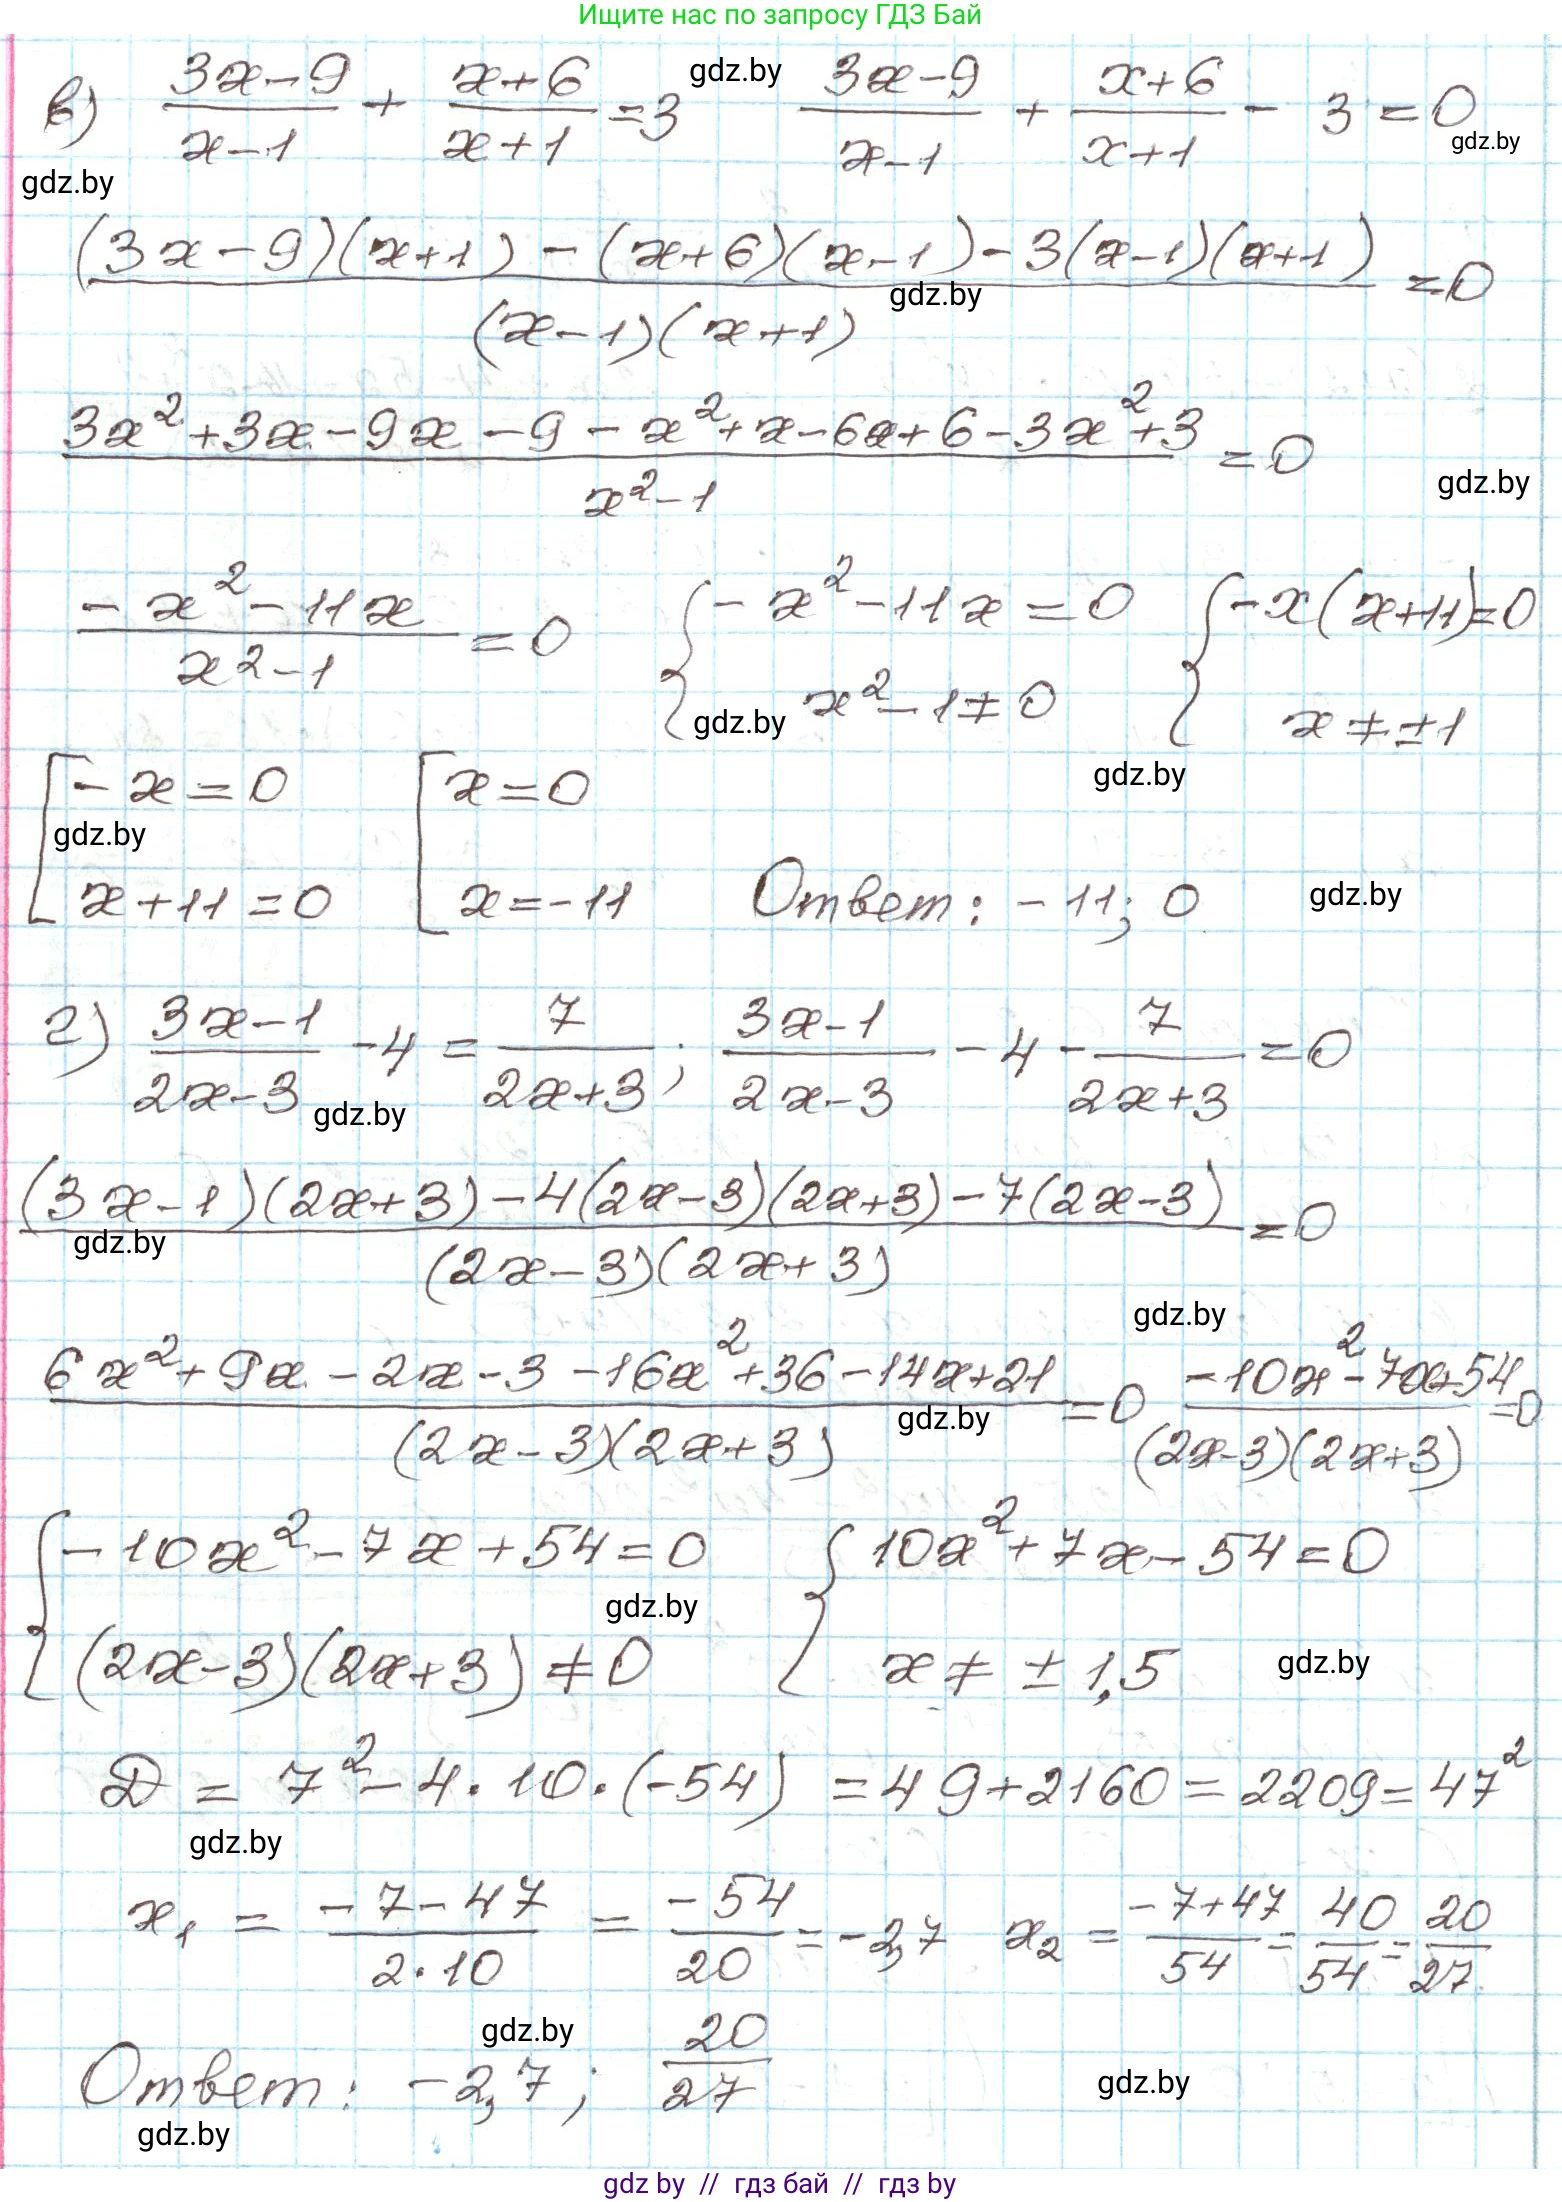 Ищите нас по запросу ГДЗ Бай
в) (3x-9)/(x-1) + (x+6)/(x+1) =3   (3x-9)/(x-1) + (x+6)/(x+1) - 3 =0
gdz.by
gdz.by
gdz.by
((3x-9)(x+1) - (x+6)(x-1) - 3(x-1)(x+1))/((x-1)(x+1)) =0
gdz.by
(3x²+3x-9x-9-x²+x-6x+6-3x²+3)/(x²-1) =0
gdz.by
(-x²-11x)/(x²-1) =0   { -x²-11x=0   { -x(x+11)=0
x²-1≠0   x≠±1
gdz.by
gdz.by
[ -x=0   [ x=0
gdz.by
x+11=0   x=-11   Ответ: -11; 0
gdz.by
г) (3x-1)/(2x-3) -4 = 7/(2x+3); (3x-1)/(2x-3) - 4 - 7/(2x+3) =0
gdz.by
((3x-1)(2x+3)-4(2x-3)(2x+3)-7(2x-3))/((2x-3)(2x+3)) =0
gdz.by
gdz.by
(6x²+9x-2x-3-16x²+36-14x+21)/((2x-3)(2x+3)) =0   (-10x²-7x+54)/((2x-3)(2x+3)) =0
gdz.by
{ -10x²-7x+54=0   { 10x²+7x-54=0
gdz.by
(2x-3)(2x+3)≠0   x≠ ±1,5
gdz.by
D = 7²-4·10·(-54) =49+2160=2209=47²
gdz.by
x₁ = (-7-47)/(2·10) = -54/20 =-2,7   x₂ = (-7+47)/54 = 40/54 = 20/27
gdz.by
Ответ: -2,7; 20/27
gdz.by
gdz.by
gdz by // гдз бай // гдз by